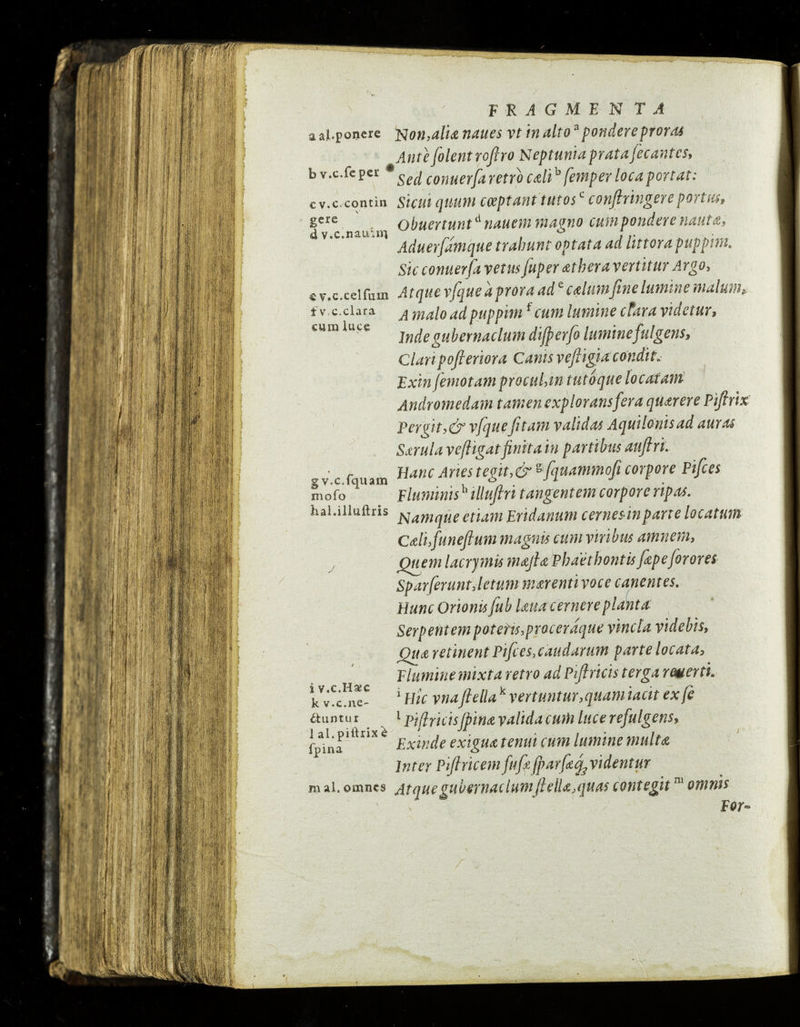 FRAGMENTA
a al.ponere Non,aliæ naues vt in alto ᵃ pondere proras
Antè ſolent roſtro Neptunia prata ſecantes,
b v.c.ſe per * Sed conuerſa retrò cæli ᵇ ſemper loca portat:
c v.c.contin Sicui quum cœptant tutos ᶜ conſtringere portus,
gere Obuertunt ᵈ nauem magno cum pondere nautæ,
d v.c.nauim Aduerſámque trahunt optata ad littora puppim.
Sic conuerſa vetus ſuper æthera vertitur Argo,
e v.c.celſum Atque vſque à prora ad ᵉ cælum ſine lumine malum,
f v.c.clara A malo ad puppim ᶠ cum lumine clara videtur,
cum luce Inde gubernaclum diſperſo lumine fulgens,
Clari poſteriora Canis veſtigia condit.
Exin ſemotam procul,in tutóque locatam
Andromedam tamen explorans fera quærere Piſtrix
Pergit,& vſque ſitam validas Aquilonis ad auras
Særula veſtigat finita in partibus auſtri.
g v.c.ſquam Hanc Aries tegit,& ᵍ ſquammoſi corpore Piſces
moſo Fluminis ʰ illuſtri tangentem corpore ripas.
h al.illuſtris Namque etiam Eridanum cernes in parte locatum
Cæli,funeſtum magnis cum viribus amnem,
Quem lacrymis mæſtæ Phaëthontis ſæpe ſorores
Sparſerunt,letum mærenti voce canentes.
Hunc Orionis ſub læua cernere planta
Serpentem poteris,proceráque vincla videbis,
Quæ retinent Piſces,caudarum parte locata,
Flumine mixta retro ad Piſtricis terga reuerti.
i v.c.Hæc ⁱ Hic vna ſtella ᵏ vertuntur,quam iacit ex ſe
k v.c.ne-
ctuntur ˡ Piſtricis ſpina valida cum luce refulgens,
l al.piſtrix è
ſpina Exinde exiguæ tenui cum lumine multæ
Inter Piſtricem fuſæ ſparſæq; videntur
m al.omnes Atque gubernaclum ſtellæ,quas contegit ᵐ omnis
For-